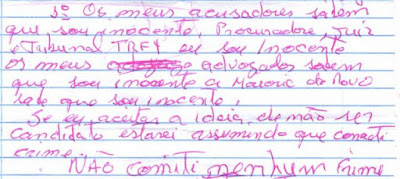 3º Os meus acusadores sabem
que sou inocente, Procurador, Juiz
e Tribunal TRF4 eu sou Inocente
os meus advogados sabem
que sou inocente a Maioria do Povo
sabe que sou inocente,
Se eu aceitar a ideia de não ser
candidato estarei assumindo que cometi
crime.
NÃO comiti nenhum crime